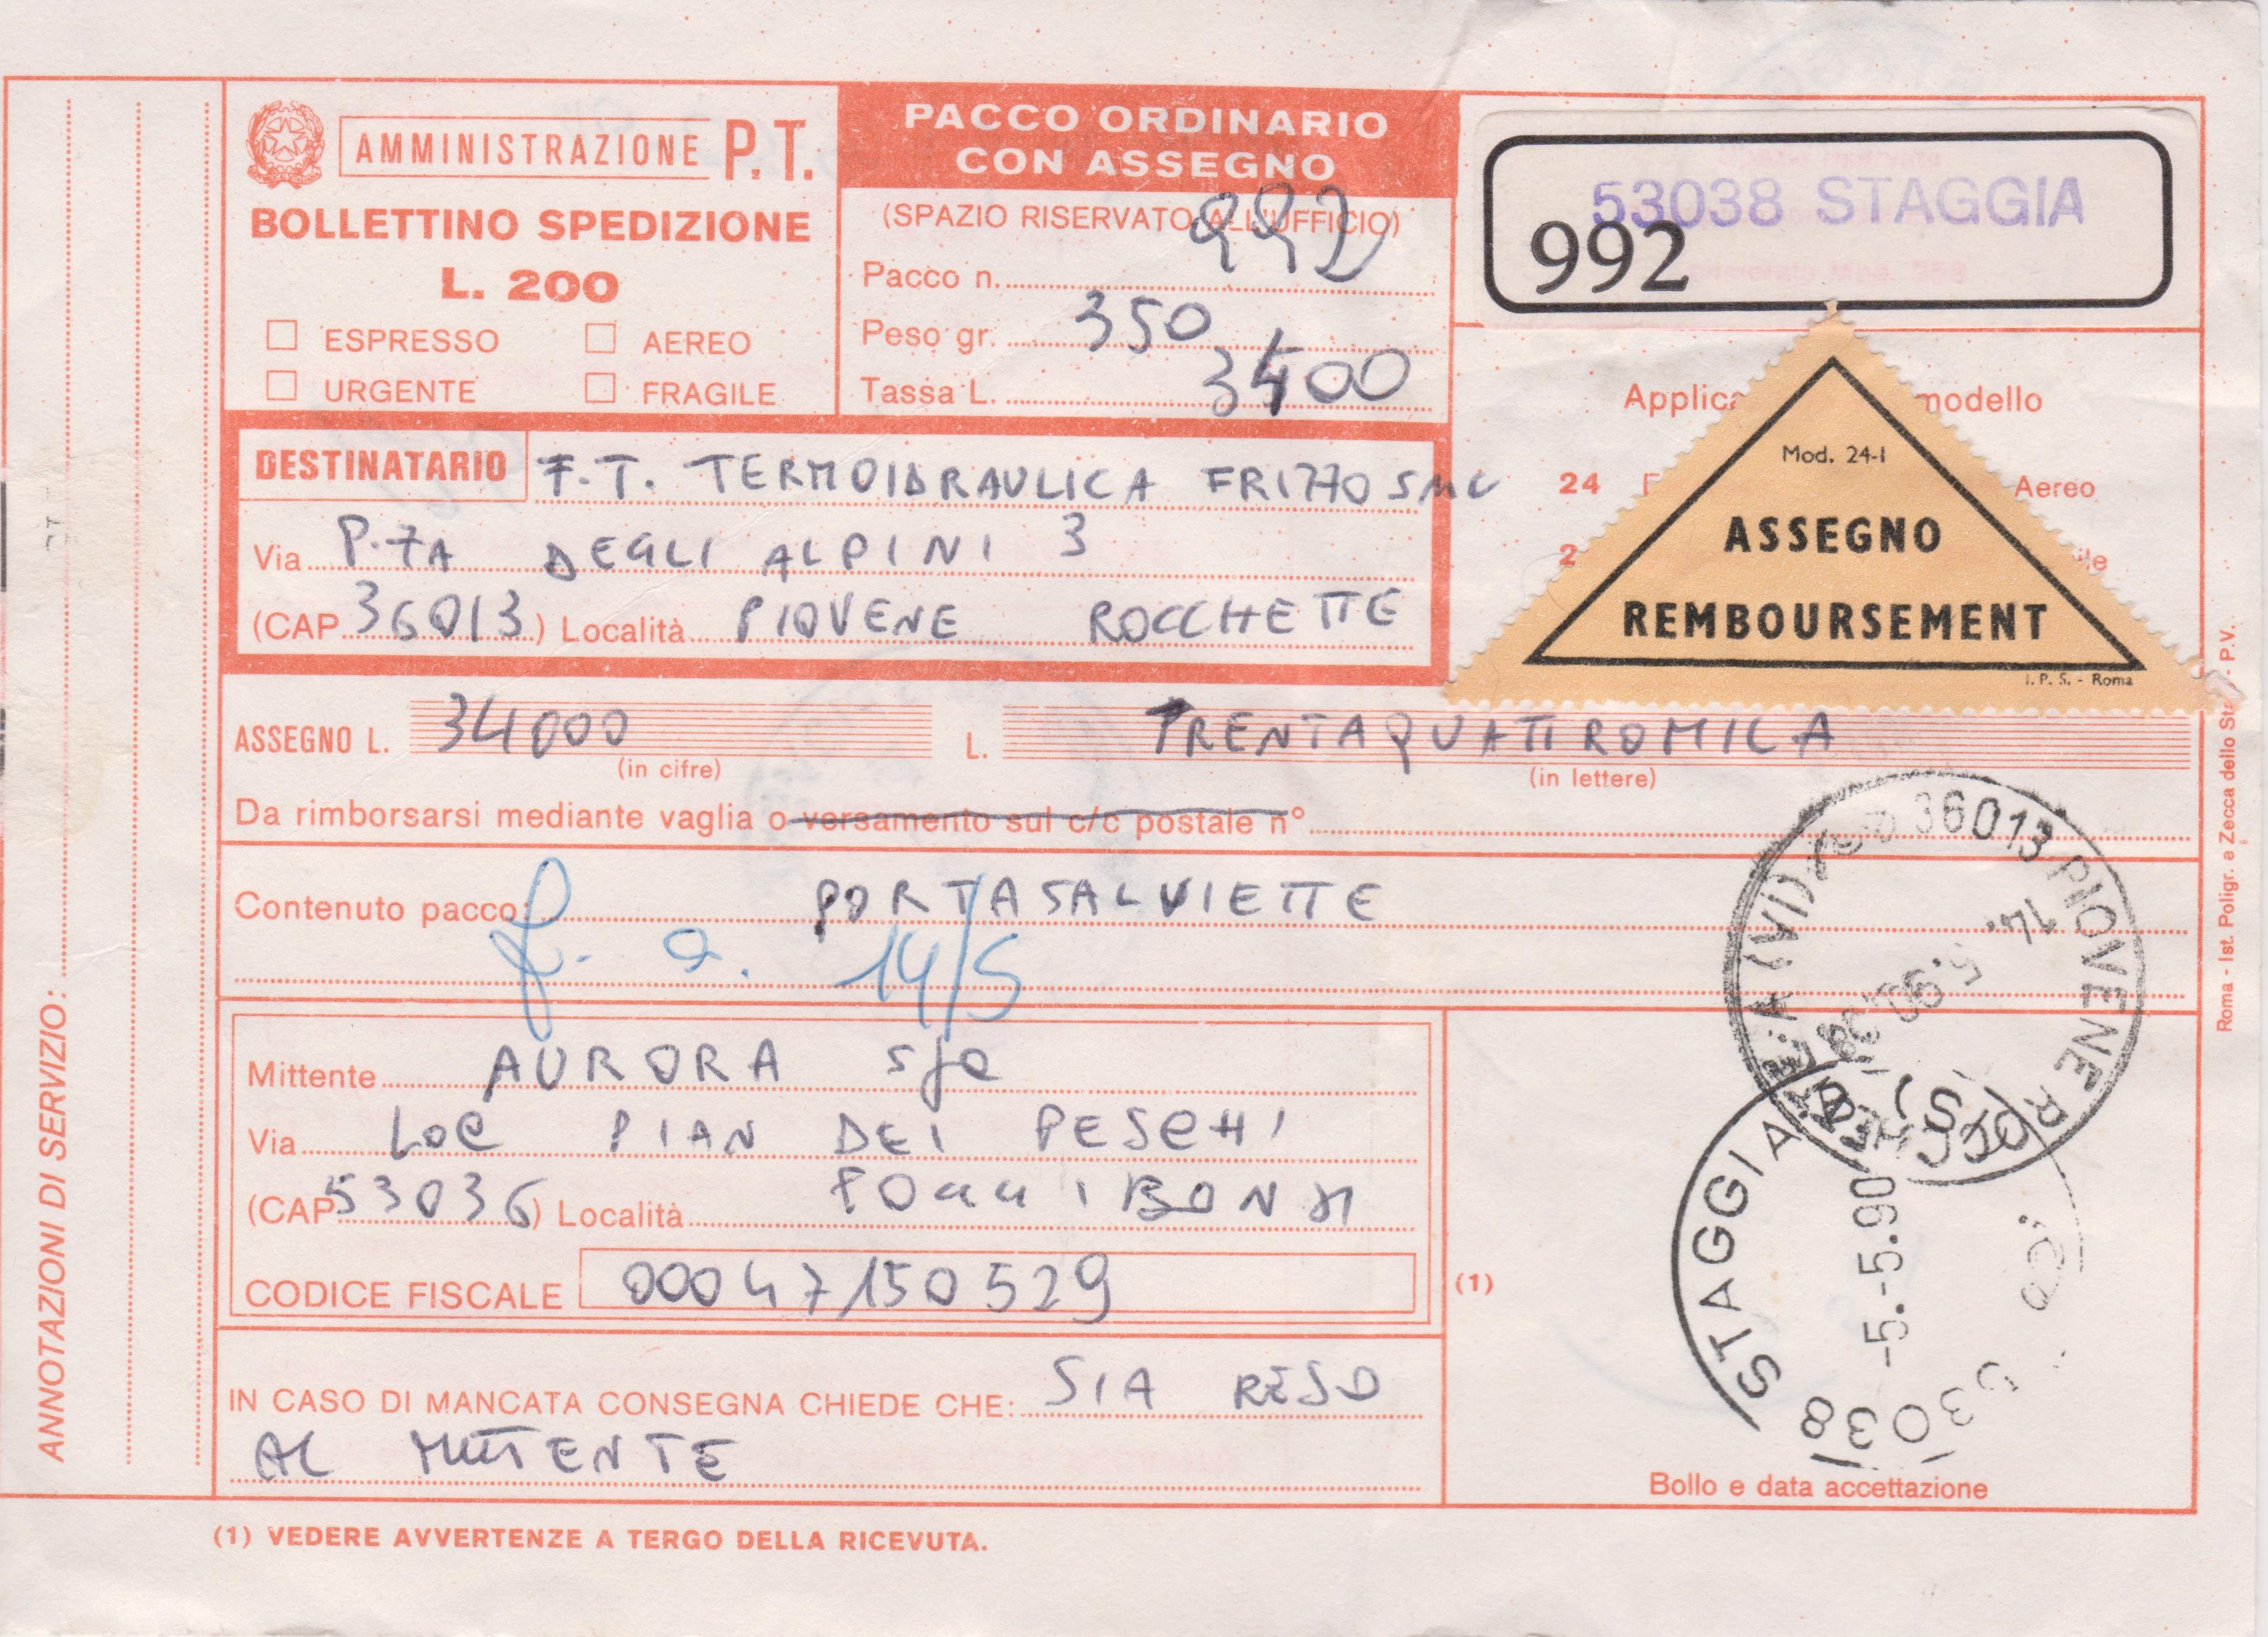 AMMINISTRAZIONE P.T.
BOLLETTINO SPEDIZIONE
L. 200
☐ ESPRESSO ☐ AEREO
☐ URGENTE ☐ FRAGILE
PACCO ORDINARIO
CON ASSEGNO
(SPAZIO RISERVATO ALL'UFFICIO)
Pacco n. 992
Peso gr. 350
Tassa L. 3400
53038 STAGGIA
992
Applica modello
24 Aereo
2
Mod. 24-I
ASSEGNO
REMBOURSEMENT
I. P. S. - Roma
DESTINATARIO F.T. TERMOIDRAULICA FRIZZO SNC
Via P.ZA DEGLI ALPINI 3
(CAP 36013) Località PIOVENE ROCCHETTE
ASSEGNO L. 34000 L. TRENTAQUATTROMILA
(in cifre) (in lettere)
Da rimborsarsi mediante vaglia o versamento sul c/c postale n°
Contenuto pacco: PORTASALVIETTE
14/5
Mittente AURORA spa
Via LOC PIAN DEI PESCHI
(CAP 53036) Località POGGIBONSI
CODICE FISCALE 00047150529
(1)
IN CASO DI MANCATA CONSEGNA CHIEDE CHE: SIA RESO
AL MITTENTE
36013 PIOVENE ROCCHETTE (VI)
14. 5. 90
53038 STAGGIA (SI)
-5.-5.90
Bollo e data accettazione
(1) VEDERE AVVERTENZE A TERGO DELLA RICEVUTA.
ANNOTAZIONI DI SERVIZIO:
Roma - Ist. Poligr. e Zecca dello Sta - P.V.